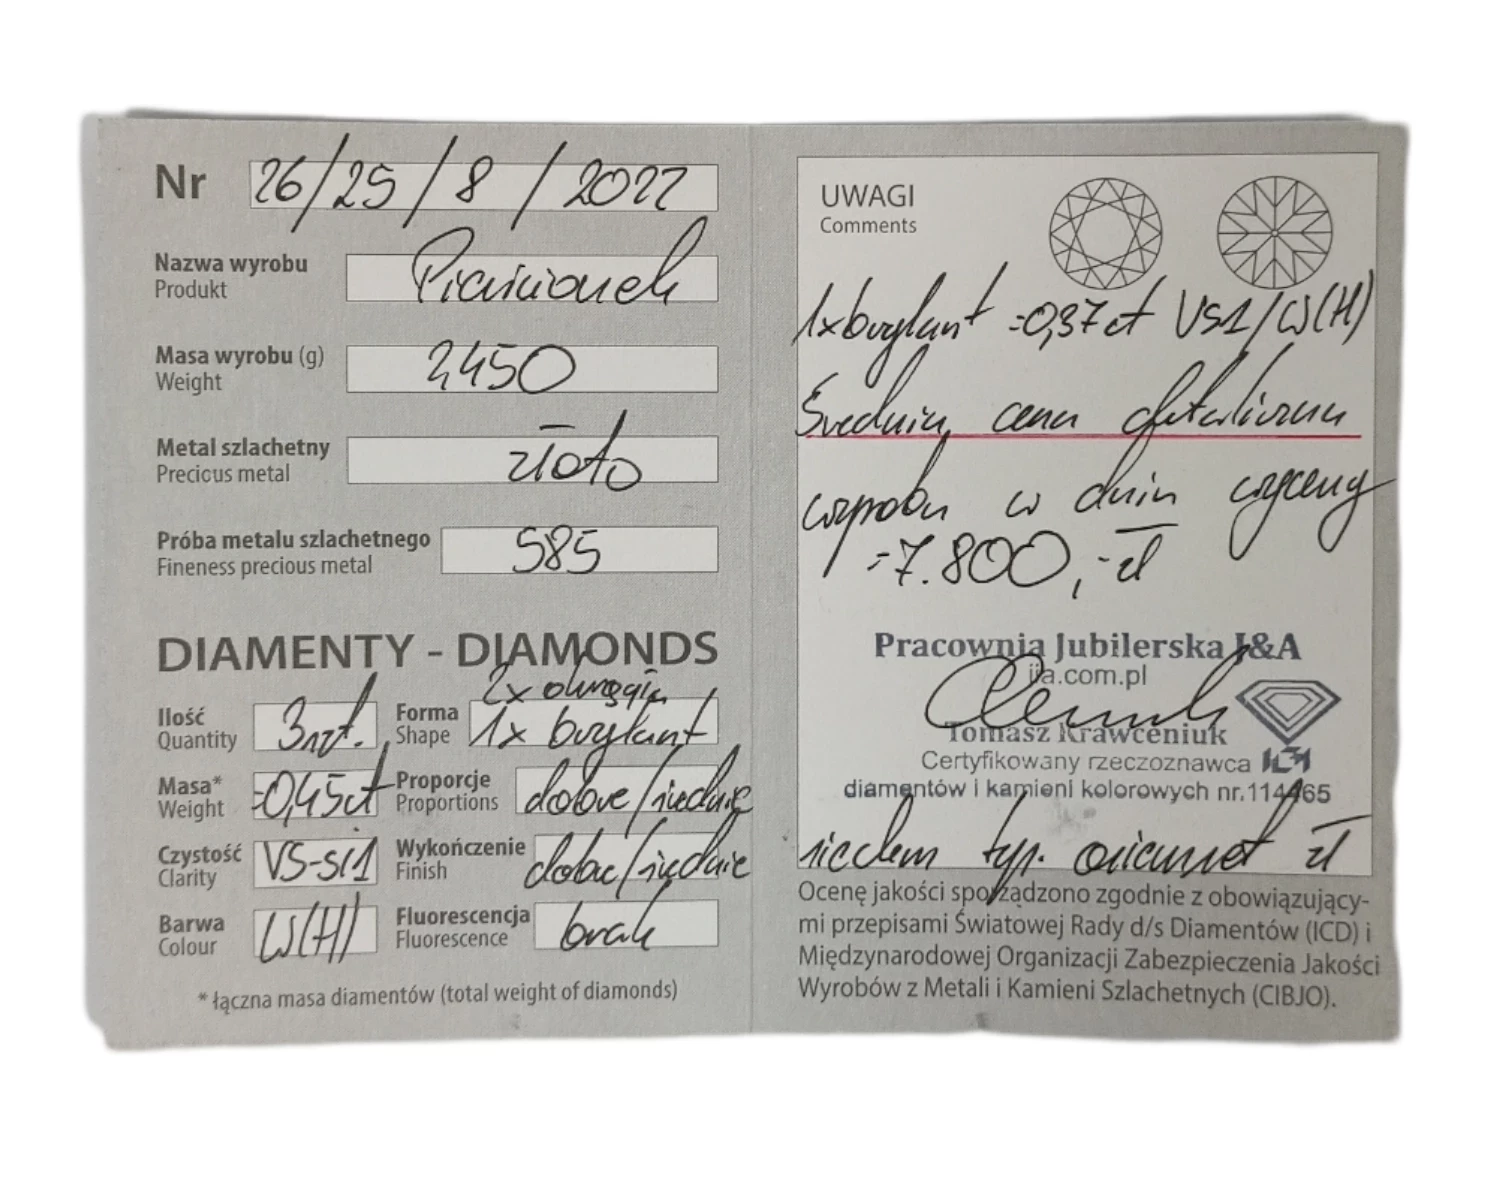 Nr 26/25/8/2022
Nazwa wyrobu Pierścionek
Produkt
Masa wyrobu (g) 2,450
Weight
Metal szlachetny złoto
Precious metal
Próba metalu szlachetnego 585
Fineness precious metal
DIAMENTY - DIAMONDS
2x okrągła
Ilość 3szt. Forma 1x brylant
Quantity Shape
Masa* =0,45ct Proporcje dobre/średnie
Weight Proportions
Czystość VS-SI1 Wykończenie dobre/średnie
Clarity Finish
Barwa W(H) Fluorescencja brak
Colour Fluorescence
* łączna masa diamentów (total weight of diamonds)
UWAGI
Comments
1x brylant =0,37ct VS1/W(H)
Średnia cena detaliczna
wyrobu w dniu wyceny
=7.800,-zł
Pracownia Jubilerska J&A
jja.com.pl
Tomasz Krawceniuk
Certyfikowany rzeczoznawca
diamentów i kamieni kolorowych nr.114465
siedem tys. osiemset zł
Ocenę jakości sporządzono zgodnie z obowiązujący-
mi przepisami Światowej Rady d/s Diamentów (ICD) i
Międzynarodowej Organizacji Zabezpieczenia Jakości
Wyrobów z Metali i Kamieni Szlachetnych (CIBJO).